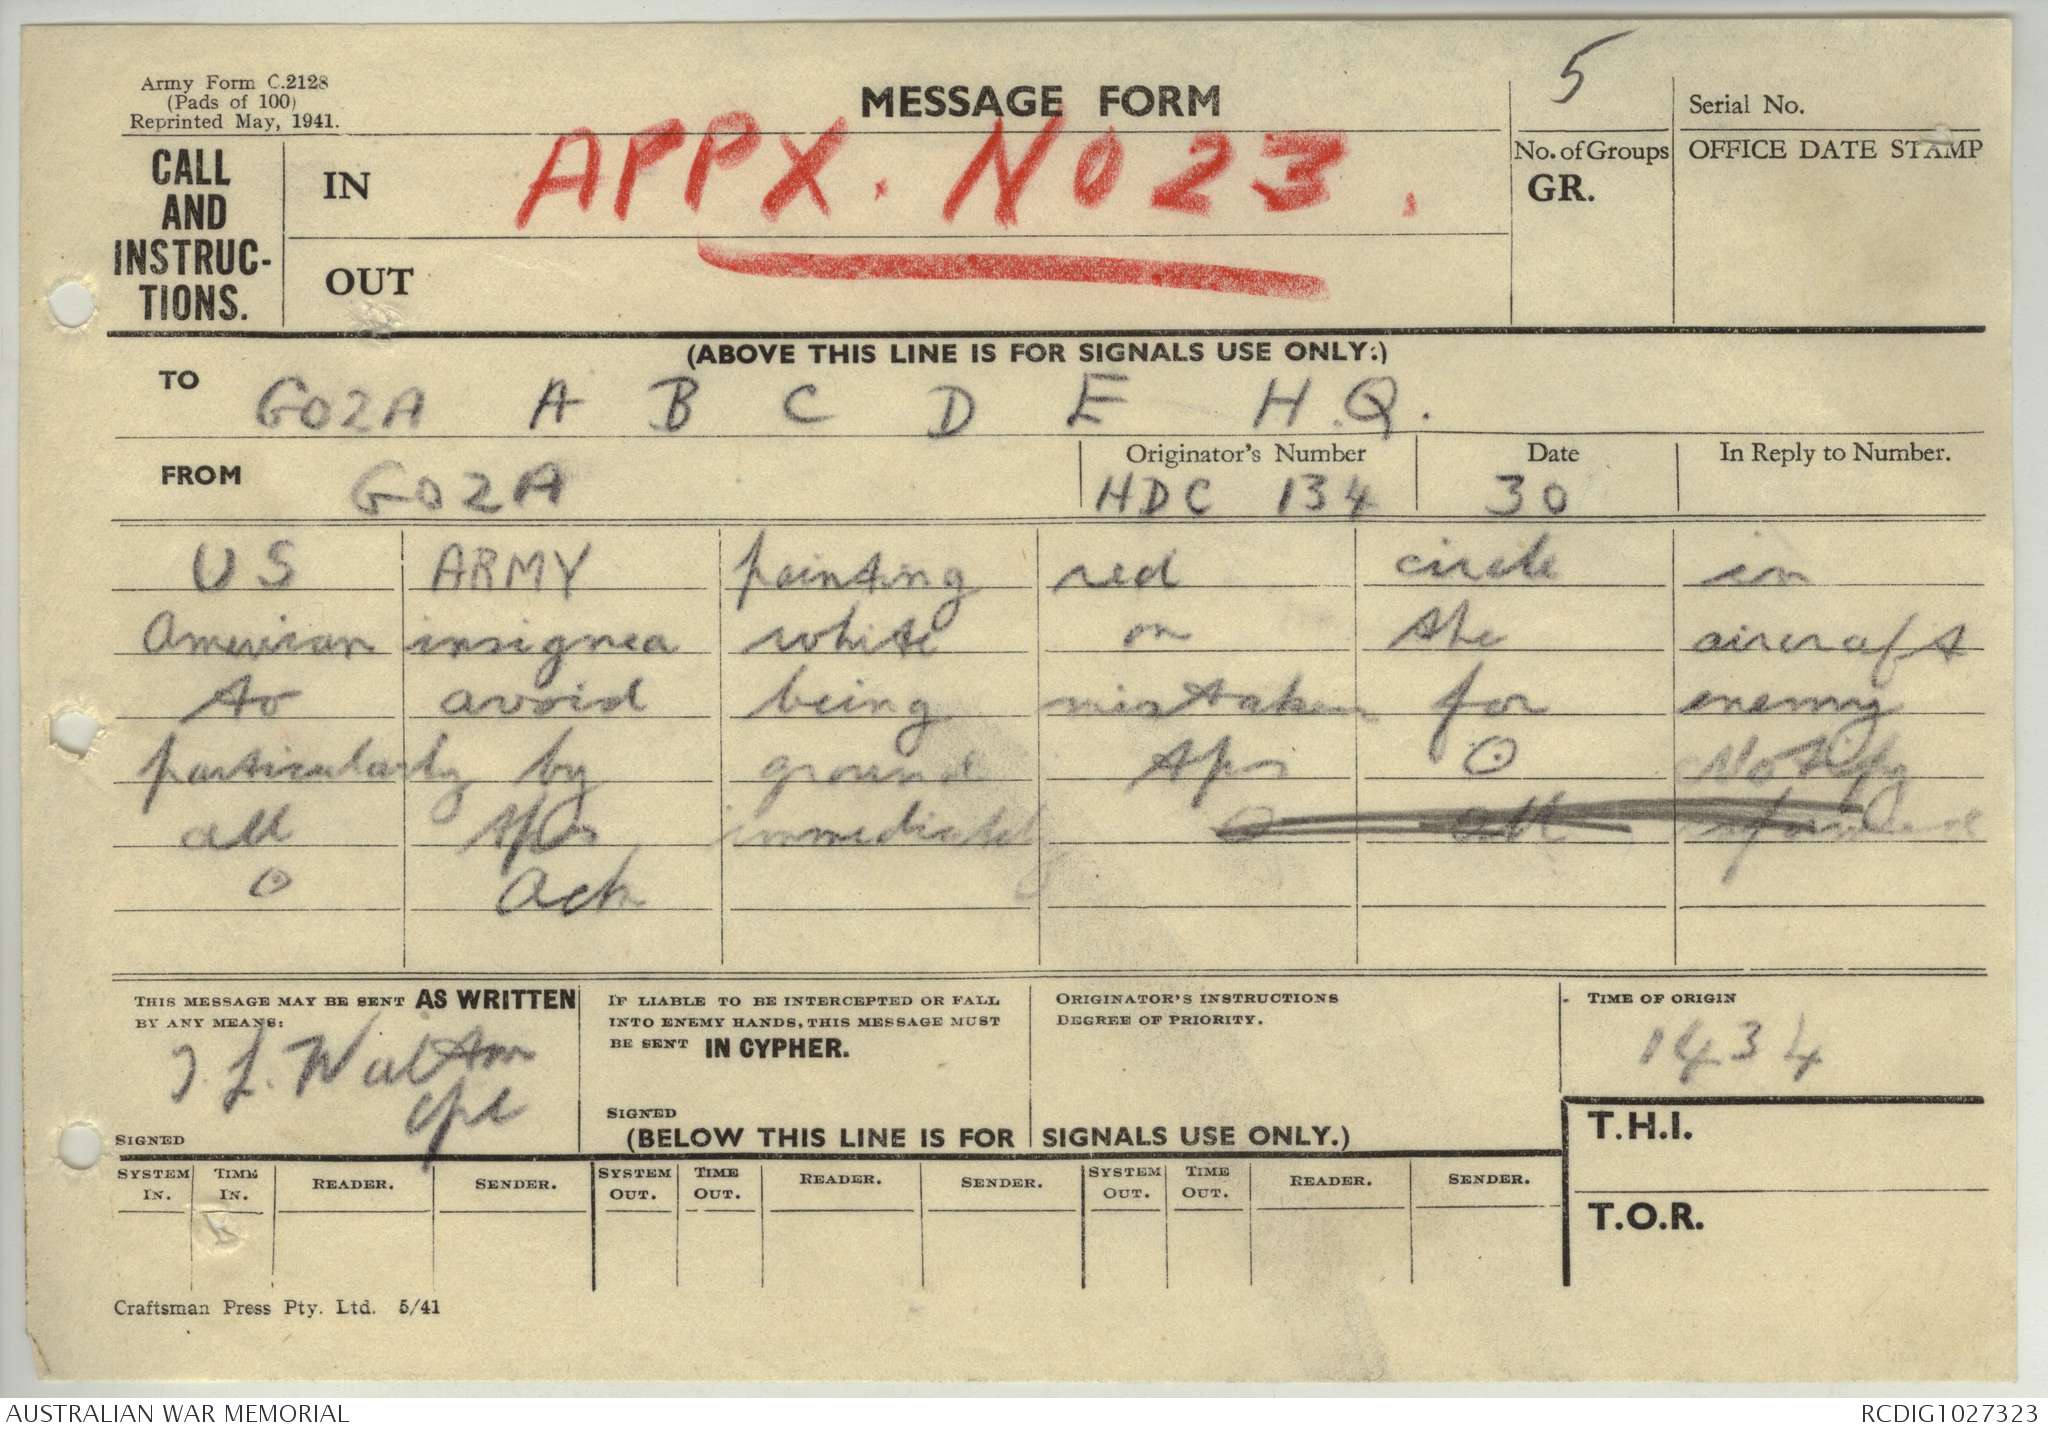 Army Form C.2128
(Pads of 100)
Reprinted May, 1941.
MESSAGE FORM
5
Serial No.
CALL AND INSTRUC-TIONS.
IN
APPX. NO 23.
No. of Groups
GR.
OFFICE DATE STAMP
OUT
(ABOVE THIS LINE IS FOR SIGNALS USE ONLY.)
TO
GO2A A B C D E H.Q.
FROM
GO2A
Originator's Number
HDC 134
Date
30
In Reply to Number.
US ARMY painting red circle in
American insignea white on the aircraft
to avoid being mistaken for enemy
particularly by ground tps O Notify
all tps immediately O all informed
O Ack
THIS MESSAGE MAY BE SENT AS WRITTEN
BY ANY MEANS:
Cpl
SIGNED
IF LIABLE TO BE INTERCEPTED OR FALL
INTO ENEMY HANDS, THIS MESSAGE MUST
BE SENT IN CYPHER.
SIGNED
ORIGINATOR'S INSTRUCTIONS
DEGREE OF PRIORITY.
TIME OF ORIGIN
1434
(BELOW THIS LINE IS FOR SIGNALS USE ONLY.)
T.H.I.
T.O.R.
SYSTEM IN. TIME IN. READER. SENDER. SYSTEM OUT. TIME OUT. READER. SENDER. SYSTEM OUT. TIME OUT. READER. SENDER.
Craftsman Press Pty. Ltd. 5/41
AUSTRALIAN WAR MEMORIAL
RCDIG1027323